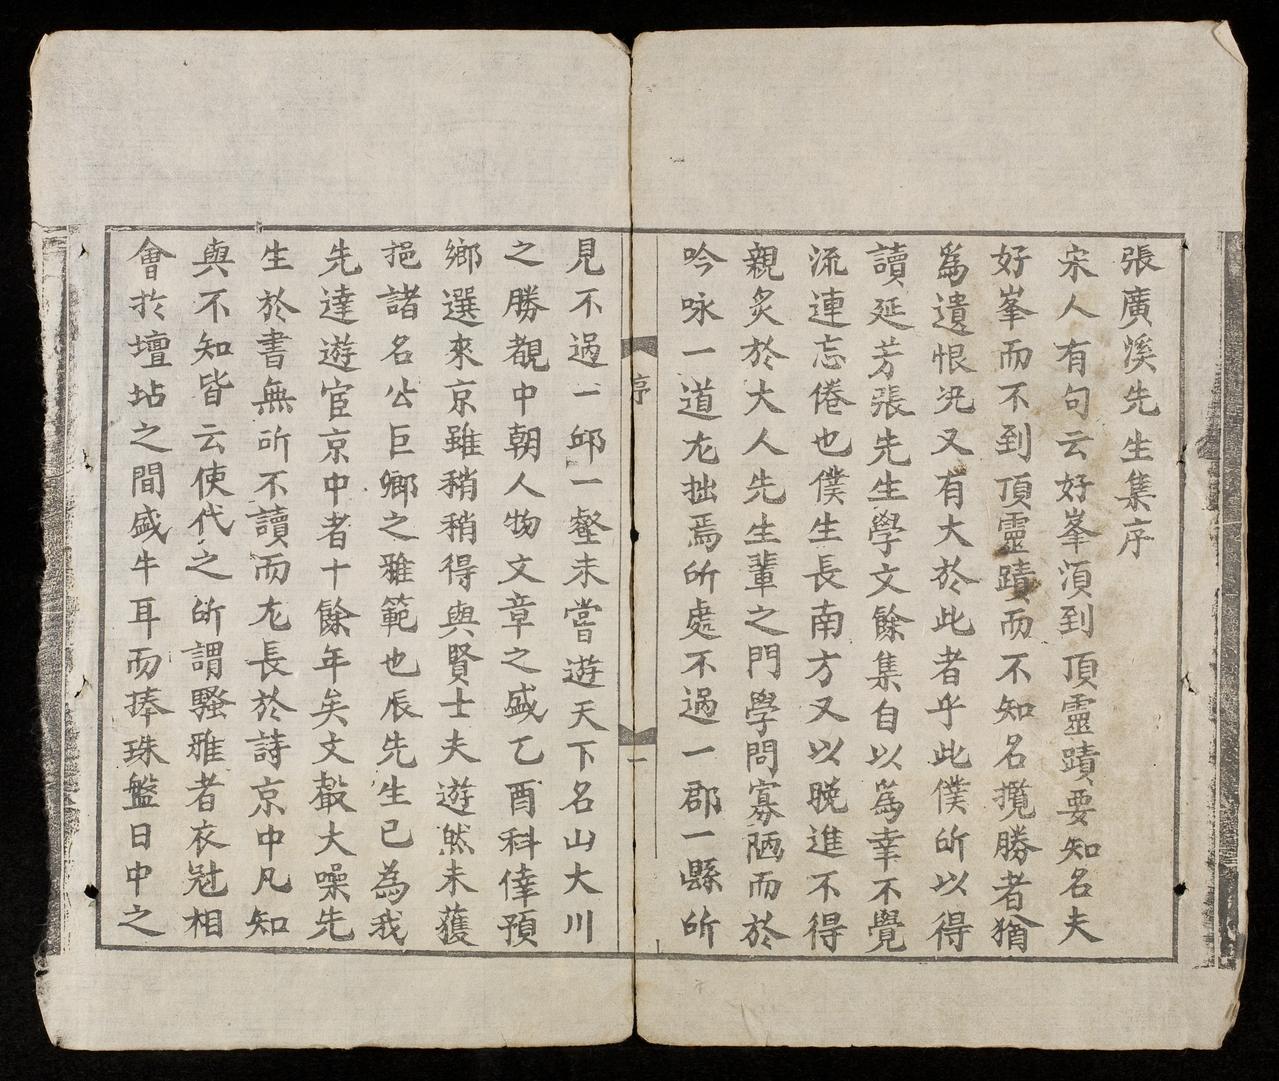 張廣溪先生集序
宋人有句云好峯湏到頂靈蹟要知名夫
好峯而不到頂靈蹟而不知名攬勝者猶
爲遺恨况又有大於此者乎此僕所以得
讀延芳張先生學文餘集自以爲幸不覺
流連忘倦也僕生長南方又以晚進不得
親炙於大人先生輩之門學問寡陋而於
吟咏一道尤拙焉所處不過一郡一縣所
序
一
見不過一邱一壑未嘗遊天下名山大川
之勝覩中朝人物文章之盛乙酉科倖預
鄉選來京雖稍稍得與賢士夫遊然未獲
挹諸名公巨鄉之雅範也辰先生已為我
先達遊宦京中者十餘年矣文聲大噪先
生於書無所不讀而尤長於詩京中凡知
與不知皆云使代之所謂騷雅者衣冠相
會於壇坫之間盛牛耳而捧珠盤日中之